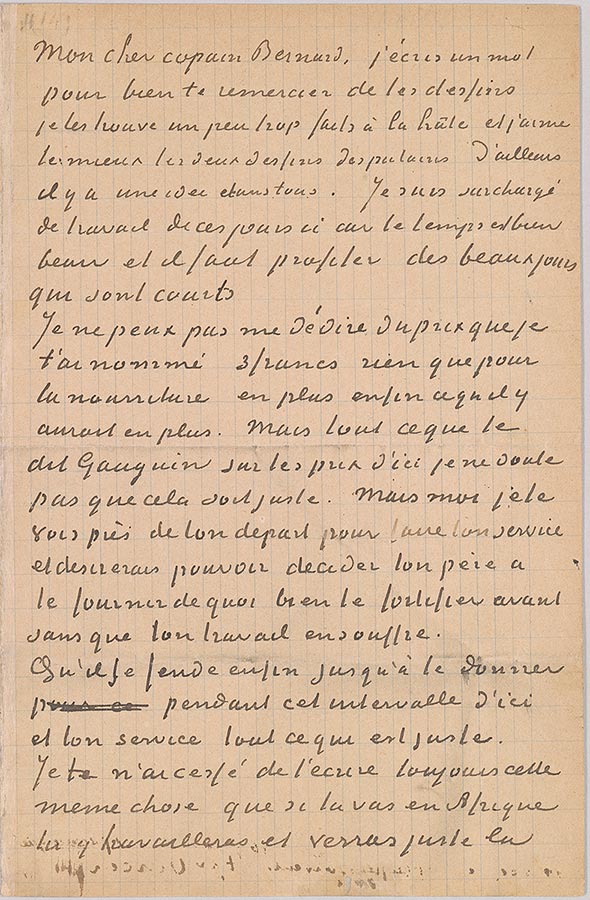 Mon cher copain Bernard, j'écris un mot
pour bien te remercier de tes dessins
je les trouve un peu trop faits à la hâte et j'aime
le mieux les deux dessins des putains D'ailleurs
il y a une idée dans tous. Je suis surchargé
de travail de ces jours ci car le temps est bien
beau et il faut profiter des beaux jours
qui sont courts
Je ne peux pas me dédire du prix que je
t'ai nommé 3 francs rien que pour
la nourriture en plus enfin ce qu'il y
aurait en plus. Mais tout ce que te
dit Gauguin sur les prix d'ici je ne doute
pas que cela soit juste. Mais moi je te
vois près de ton départ pour faire ton service
et desirerais pouvoir decider ton père a
te fournir de quoi bien te fortifier avant
sans que ton travail en souffre.
Qu'il se fende enfin jusqu'à te donner
pour ce pendant cet intervalle d'ici
et ton service tout ce qui est juste.
Je te n'ai cessé de t'écrire toujours cette
meme chose que si tu vas en Afrique
tu y travailleras et verras juste la